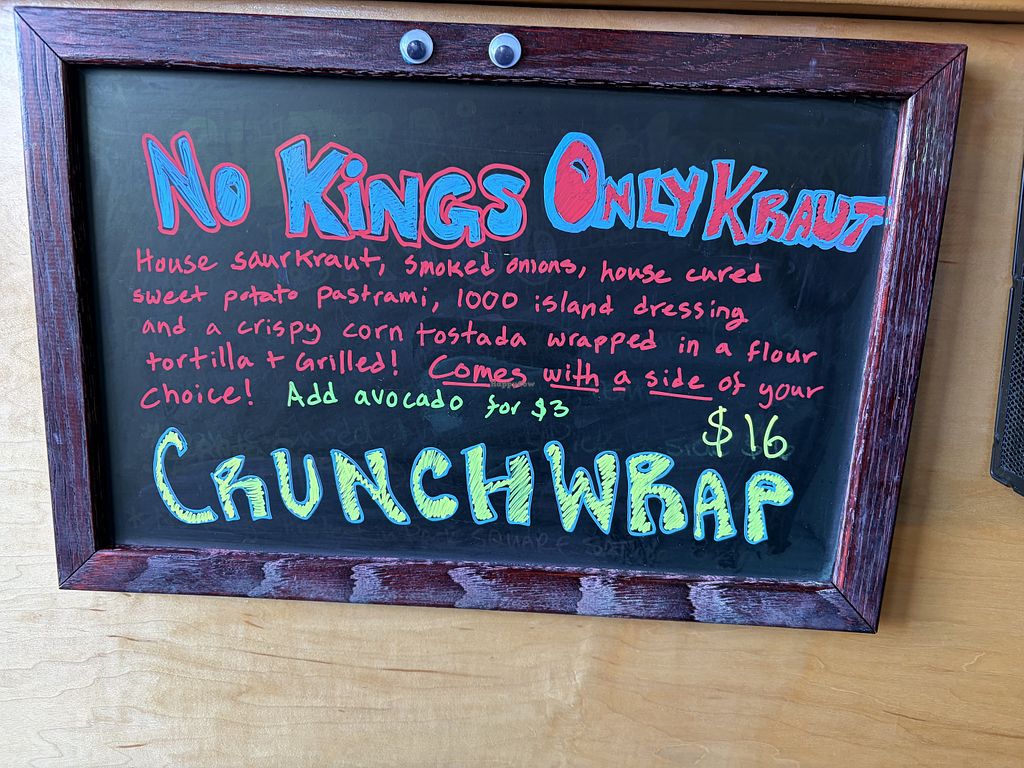 No Kings Only Kraut
House saurkraut, smoked onions, house cured
sweet potato pastrami, 1000 island dressing
and a crispy corn tostada wrapped in a flour
tortilla + Grilled! Comes with a side of your
choice! Add avocado for $3
$16
CRUNCHWRAP
HappyCow